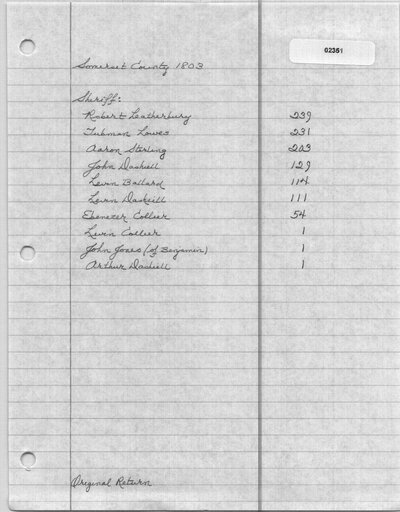 02351
Somerset County 1803
Sheriff:
Robert Leatherbury 239
Tubman Lowes 231
Aaron Sterling 203
John Dashiell 129
Levin Ballard 114
Levin Dashiell 111
Ebenezer Collier 54
Levin Collier 1
John Jones (of Benjamin) 1
Arthur Dashiell 1
Original Return